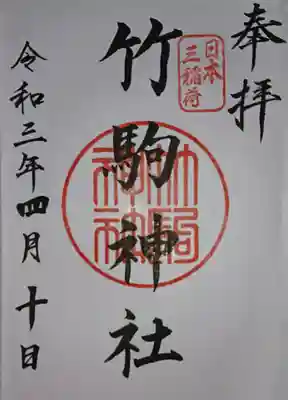 奉拝
日本
三稲荷
竹駒神社
竹駒
神社
令和三年四月十日